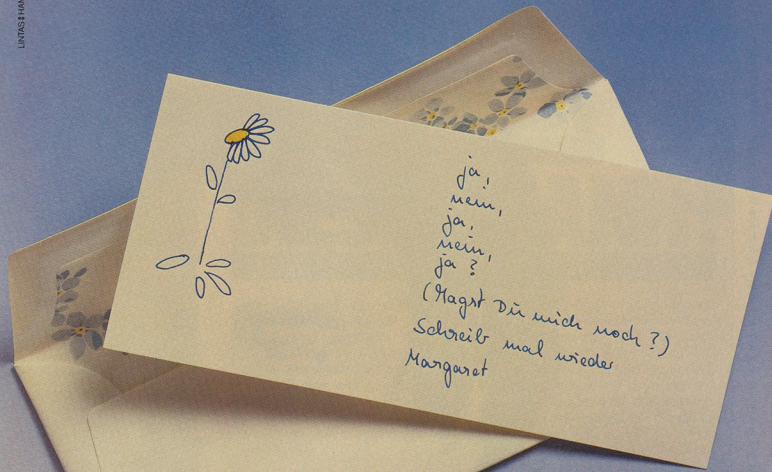 LINTAS
ja,
nein,
ja,
nein,
ja?
(Magst Du mich noch?)
Schreib mal wieder
Margaret